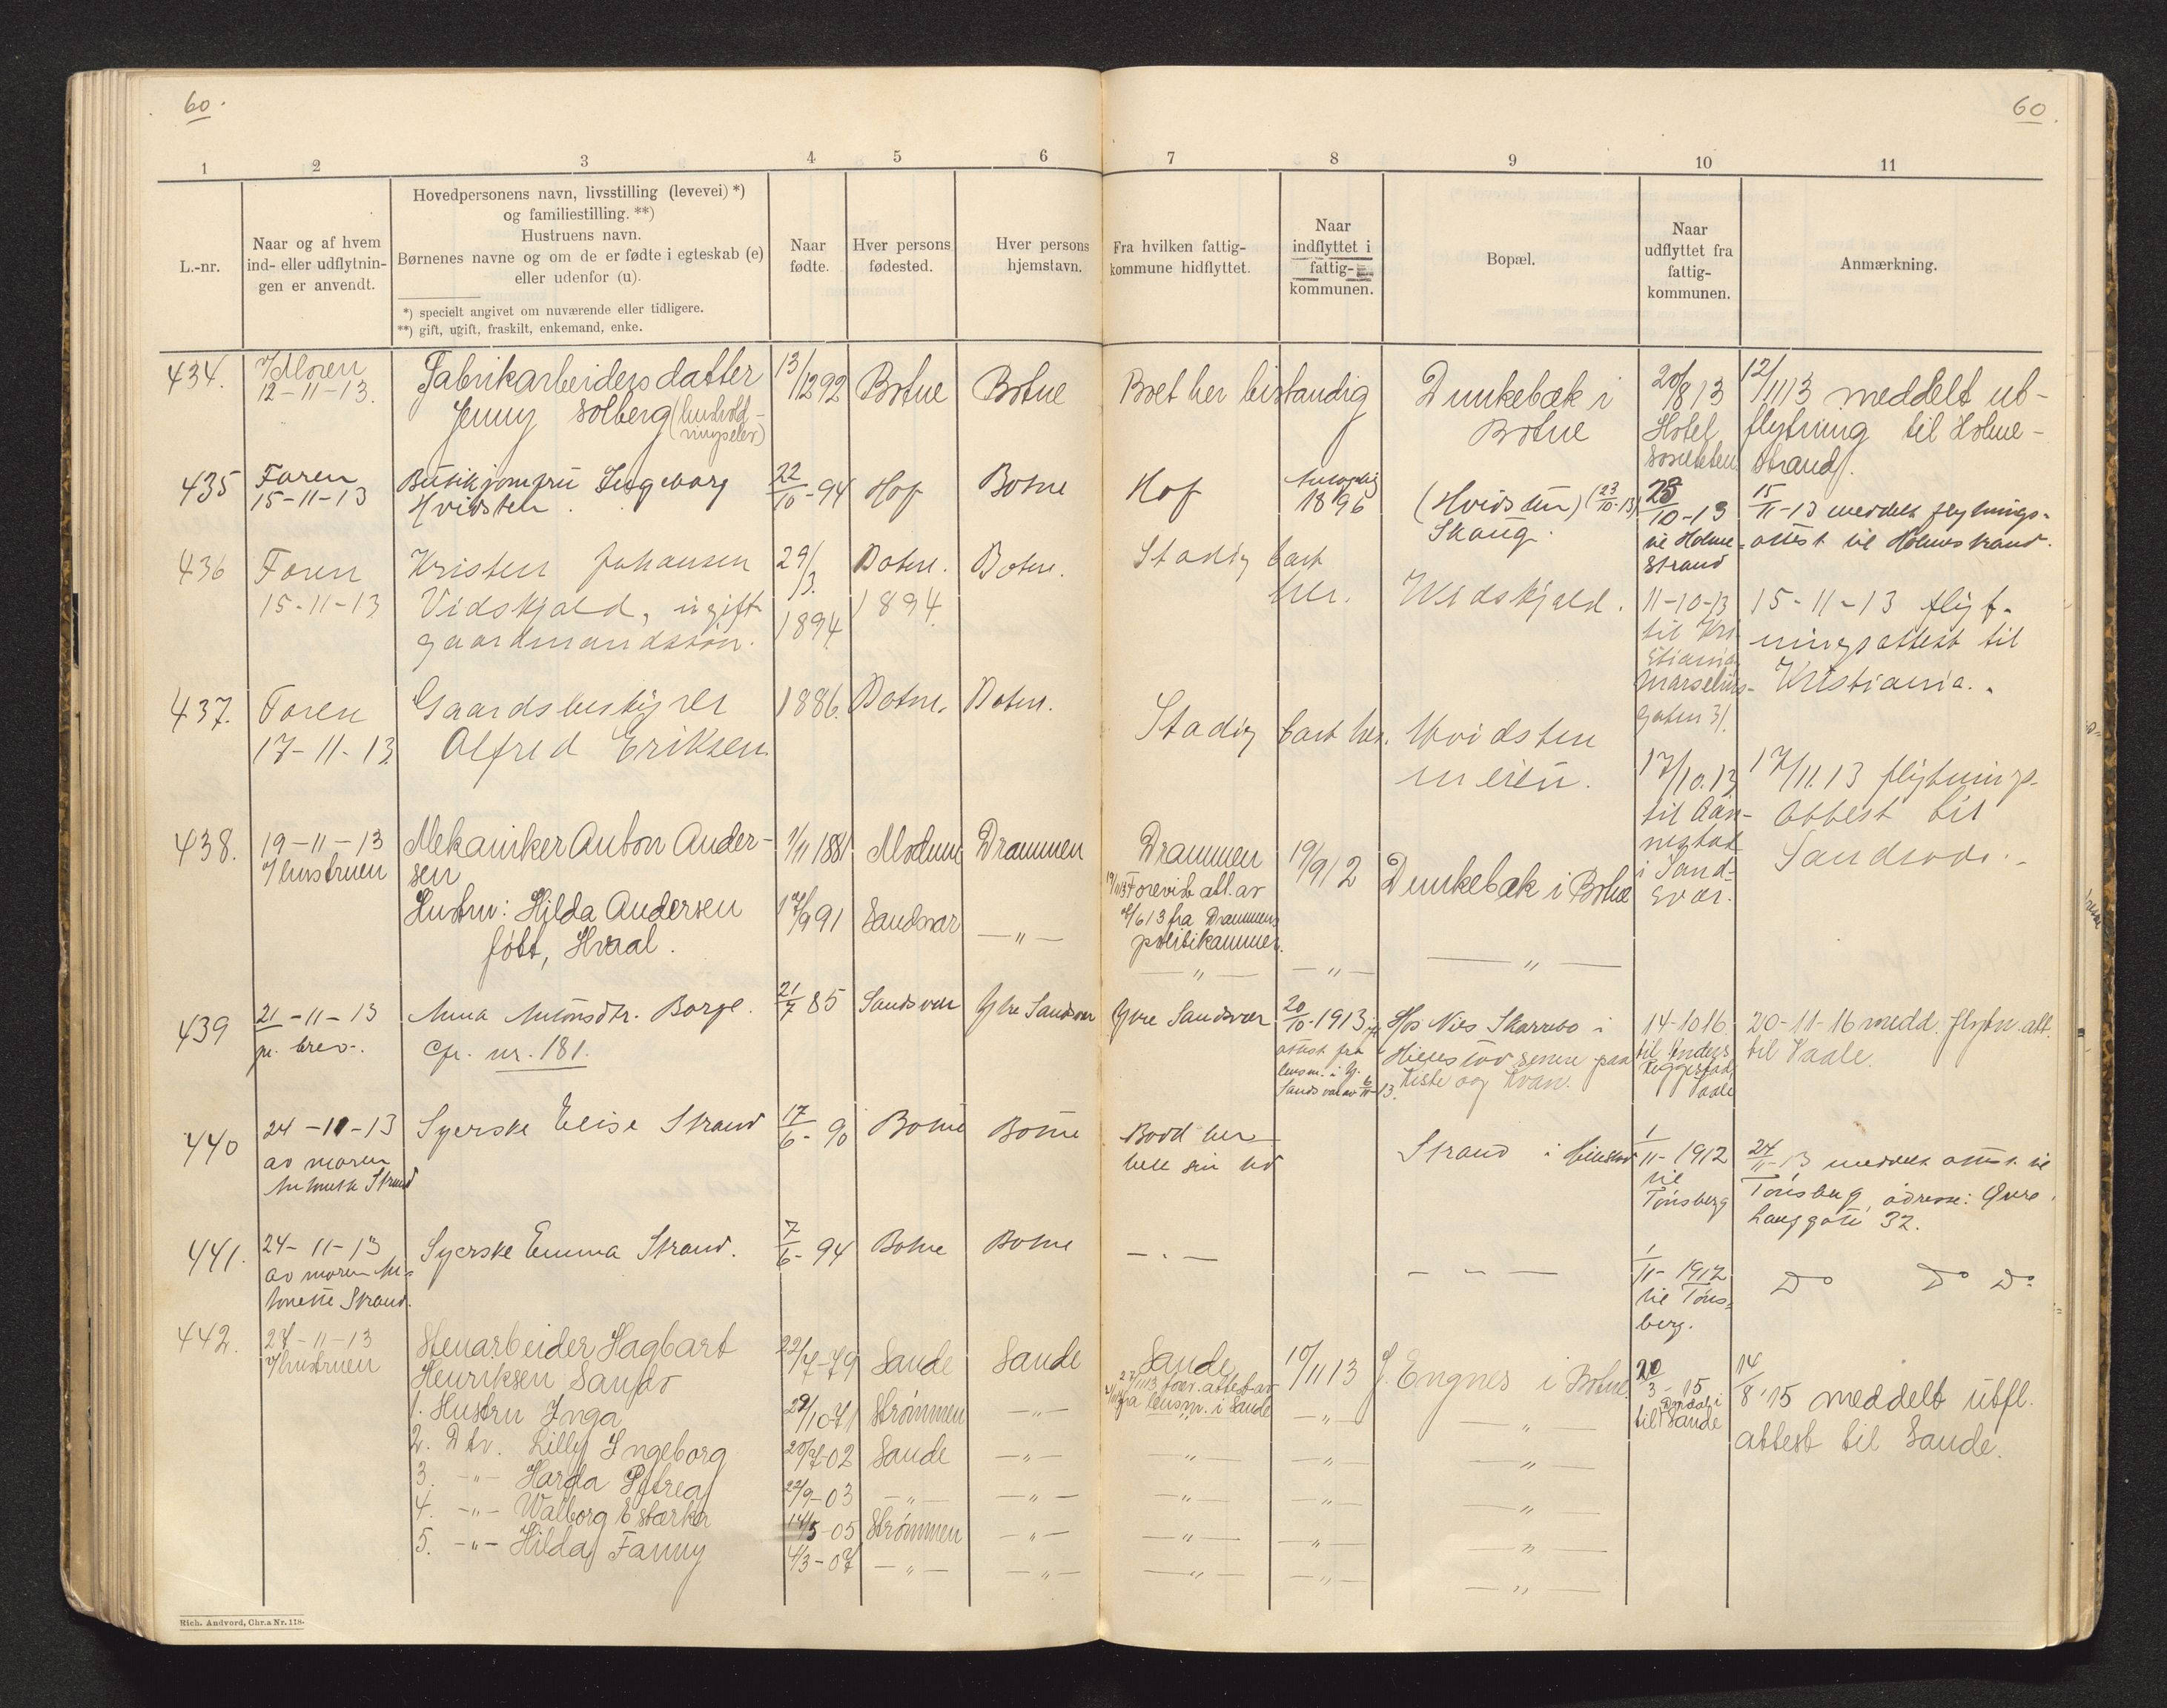 60.
60.
1 2 3 4 5 6 7 8 9 10 11
L.-nr.
Naar og af hvem
ind- eller udflytnin-
gen er anvendt.
Hovedpersonens navn, livsstilling (levevei) *)
og familiestilling. **)
Hustruens navn.
Børnenes navne og om de er fødte i egteskab (e)
eller udenfor (u).
*) specielt angivet om nuværende eller tidligere.
**) gift, ugift, fraskilt, enkemand, enke.
Naar
fødte.
Hver persons
fødested.
Hver persons
hjemstavn.
Fra hvilken fattig-
kommune hidflyttet.
Naar
indflyttet i
fattig-
kommunen.
Bopæl.
Naar
udflyttet fra
fattig-
kommunen.
Anmærkning.
434.
Moren
12-11-13.
Fabrikarbeidersdatter
Jenny Solberg (hushold-
ningselev)
13/12 92
Botne
Botne
Boet her bistandig
Dunkebæk i
Botne
20/8 13
Hotel
Societeten
12/11 13 meddelt ut-
flytning til Holme-
strand.
435
Faren
15-11-13
Butikjomfru Ingeborg
Hvidsten.
22/10-94
Hof
Botne
Hof
1896
(Hvidsten) (23/10-13)
Skaug.
23/10-13
til Holme-
strand
15/11-13 meddelt flytnings-
attest til Holmestrand.
436
Faren
15-11-13
Kristen Johansen
Vidskjold, ugift
gaardmandssøn.
29/3.
1894
Botne.
1894
Botne.
Stadig bart
her.
Vidskjold.
11-10-13
til Kri
stiania
Marselius-
gaten 31.
15-11-13 flyt-
ningsattest til
Kristiania.
437.
Faren
17-11-13
Gaardsbestyrer
Alfred Eriksen
1886.
Botne.
Botne.
Stadig bart her.
Hvidsten
meieri.
17/10.13
til
i Sand-
svær.
17/11.13 flytnings-
attest til
438.
19-11-13
Hustruen
Mekaniker Anton Ander-
sen
Hustru: Hilda Andersen
født, Hvaal.
1/11 1881
17/9 91
Modum
Sandsvær
Drammen
-"-
Drammen
19/11 13 Forevist att. av
4/6 13 fra Drammens
politikammer.
-"-
19/9 12
-"-
Dunkebæk i Botne
-"-
439
21-11-13
pr. brev.
Anna Antonsdtr. Borge.
Cfr. nr. 181.
21/7 85
Sandsvær
Ytre Sandsvær
Ytre Sandsvær
20/10-1913
attest fra
lensm. i Y.
Sandsvær av 6/11-13.
Hos Nils Skarrebo i
Hillestad senere paa
Kiste og Kvan.
14-10 16
til Anders
Vaale
20-11-16 medd. flytn. att.
til Vaale.
440
24-11-13
av moren
Antonette Strand
Syerske Elise Strand
17/6-90
Botne
Botne
Bodd her
hele sin tid
Strand i Hillestad
1/11-1912
til
Tønsberg
24/11-13 meddelt attest til
Tønsberg, adresse: Øvre
Langgate 32.
441.
24-11-13
av moren An-
tonette Strand.
Syerske Emma Strand.
7/6-94
Botne
Botne
-.-
- - -
1/11-1912
til Tøns-
berg.
Do Do Do
442.
27-11-13
Hustruen
Stenarbeider Hagbart
Henriksen Sando
1. Hustru Inga
2. Dtr. Lilly Ingeborg
3. -"- Harda Petrea
4. -"- Walborg Estarka
5. -"- Hilda Fanny
22/7-79
29/10-71
20/7-02
22/9-03
14/5-05
4/3-07
Sande
Strømmen
Sande
-"-
Strømmen
-"-
Sande
-"-
-"-
-"-
-"-
-"-
Sande
27/11 13 forev. attest av
fra lensm. i Sande
-"-
-"-
-"-
-"-
10/11 13
-"-
-"-
-"-
-"-
-"-
Engnes i Botne
-"-
-"-
-"-
-"-
-"-
20/3-15
til Sande
14/8 '15 meddelt utfl.
attest til Sande.
Rich. Andvord, Chr.a Nr. 118.